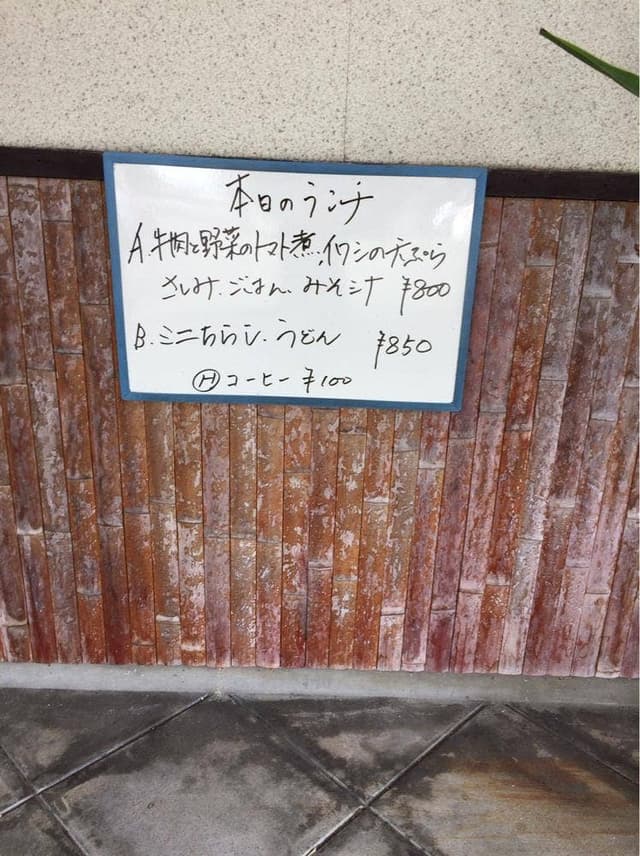 本日のランチ
A.牛肉と野菜のトマト煮.イワシの天ぷら
さしみ.ごはん.みそ汁 ¥800
B.ミニちらし.うどん ¥850
Ⓗコーヒー ¥100